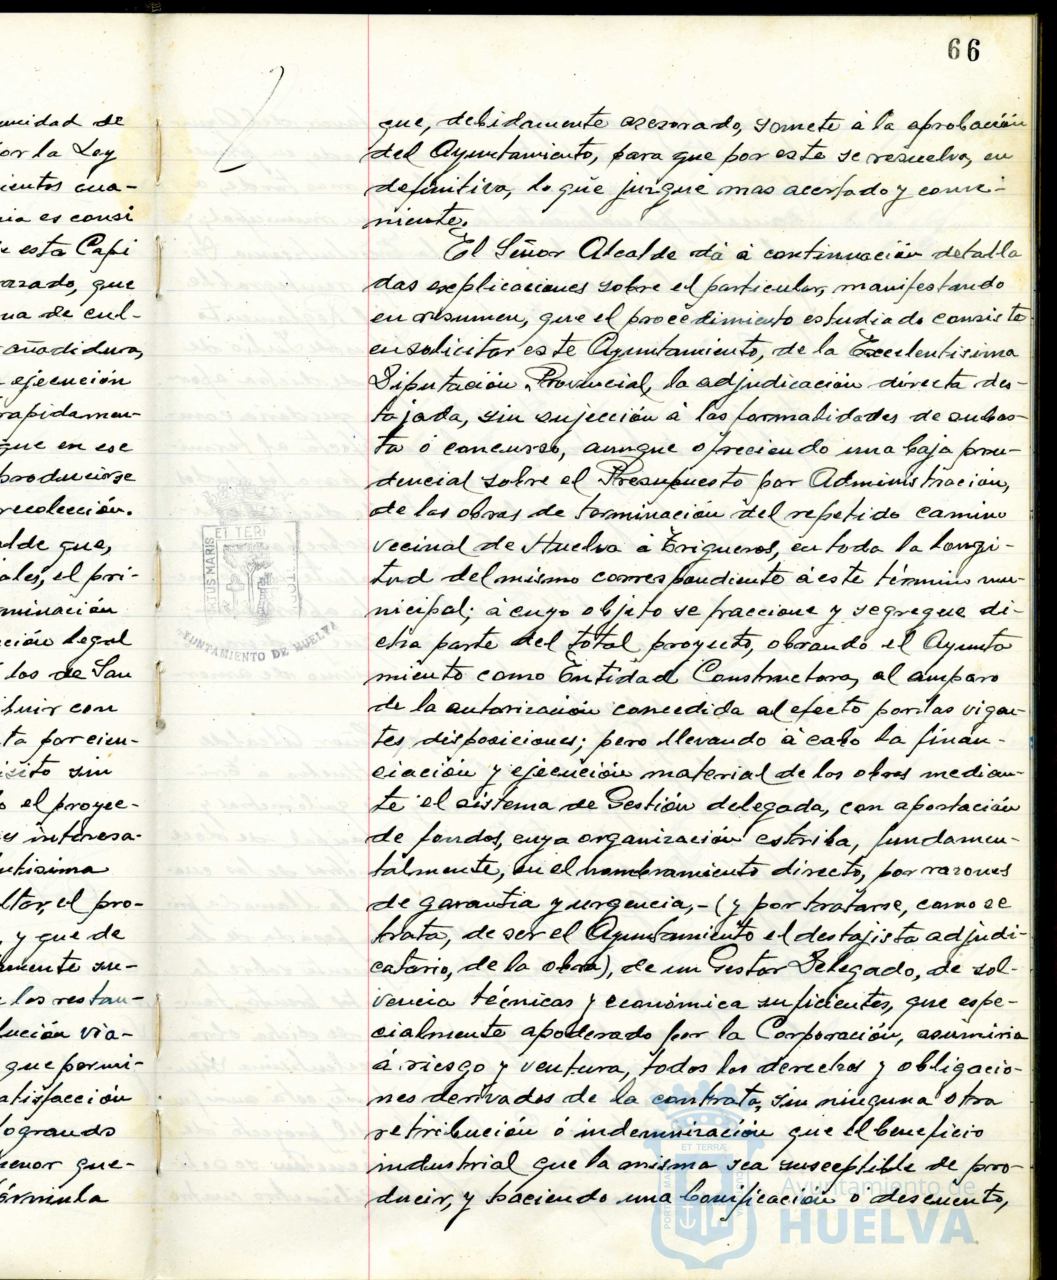 66
unidad de
or la Ley
ientos cua-
nia es consi
e esta Capi
arado, que
na de cul-
añadidura,
ejecución
rapidamen-
que en ese
producirse
recolección.
alde que,
ales, el pri-
minación
ción legal
los de San
buir con
ta por cien-
isito sin
o el proyec-
es interesa-
ntisima
ltar, el pro-
, y que de
amente su-
e los restan-
lución via-
que permi-
atisfacción
logrando
menor que-
órmula
que, debidamente asesorado, somete à la aprobación
del Ayuntamiento, para que por este se resuelva, en
definitiva, lo que juzgue mas acertado y conve-
niente.
El Señor Alcalde dà à continuación detalla
das explicaciones sobre el particular, manifestando
en resumen, que el procedimiento estudiado consiste
en solicitar este Ayuntamiento, de la Excelentisima
Diputación Provincial, la adjudicación directa des-
tajada, sin sujección à las formalidades de subas-
ta ó concurso, aunque ofreciendo una baja pru-
dencial sobre el Presupuesto por Administración,
de las obras de terminación del repetido camino
vecinal de Huelva à Trigueros, en toda la longi-
tud del mismo correspondiente à este término mu-
nicipal; à cuyo objeto se fraccione y segregue di-
cha parte del total proyecto, obrando el Ayunta
miento como Entidad Constructora, al amparo
de la autorización concedida al efecto por las vigen-
tes disposiciones; pero llevando à cabo la finan-
ciación y ejecución material de las obras median-
te el sistema de Gestión delegada, con aportación
de fondos, cuya organización estriba, fundamen-
talmente, en el nombramiento directo, por razones
de garantia y urgencia,- (y por tratarse, como se
trata, de ser el Ayuntamiento el destajista adjudi-
catario, de la obra), de un Gestor Delegado, de sol-
vencia técnicas y económica suficientes, que espe-
cialmente apoderado por la Corporación, asumiria
à riesgo y ventura, todos los derechos y obligacio-
nes derivados de la contrata, sin ninguna otra
retribución ó indemnización que el beneficio
industrial que la misma sea susceptible de pro-
ducir, y haciendo una bonificación o descuento,
ET TERR
AYUNTAMIENTO DE HUELVA
Ayuntamiento de
HUELVA